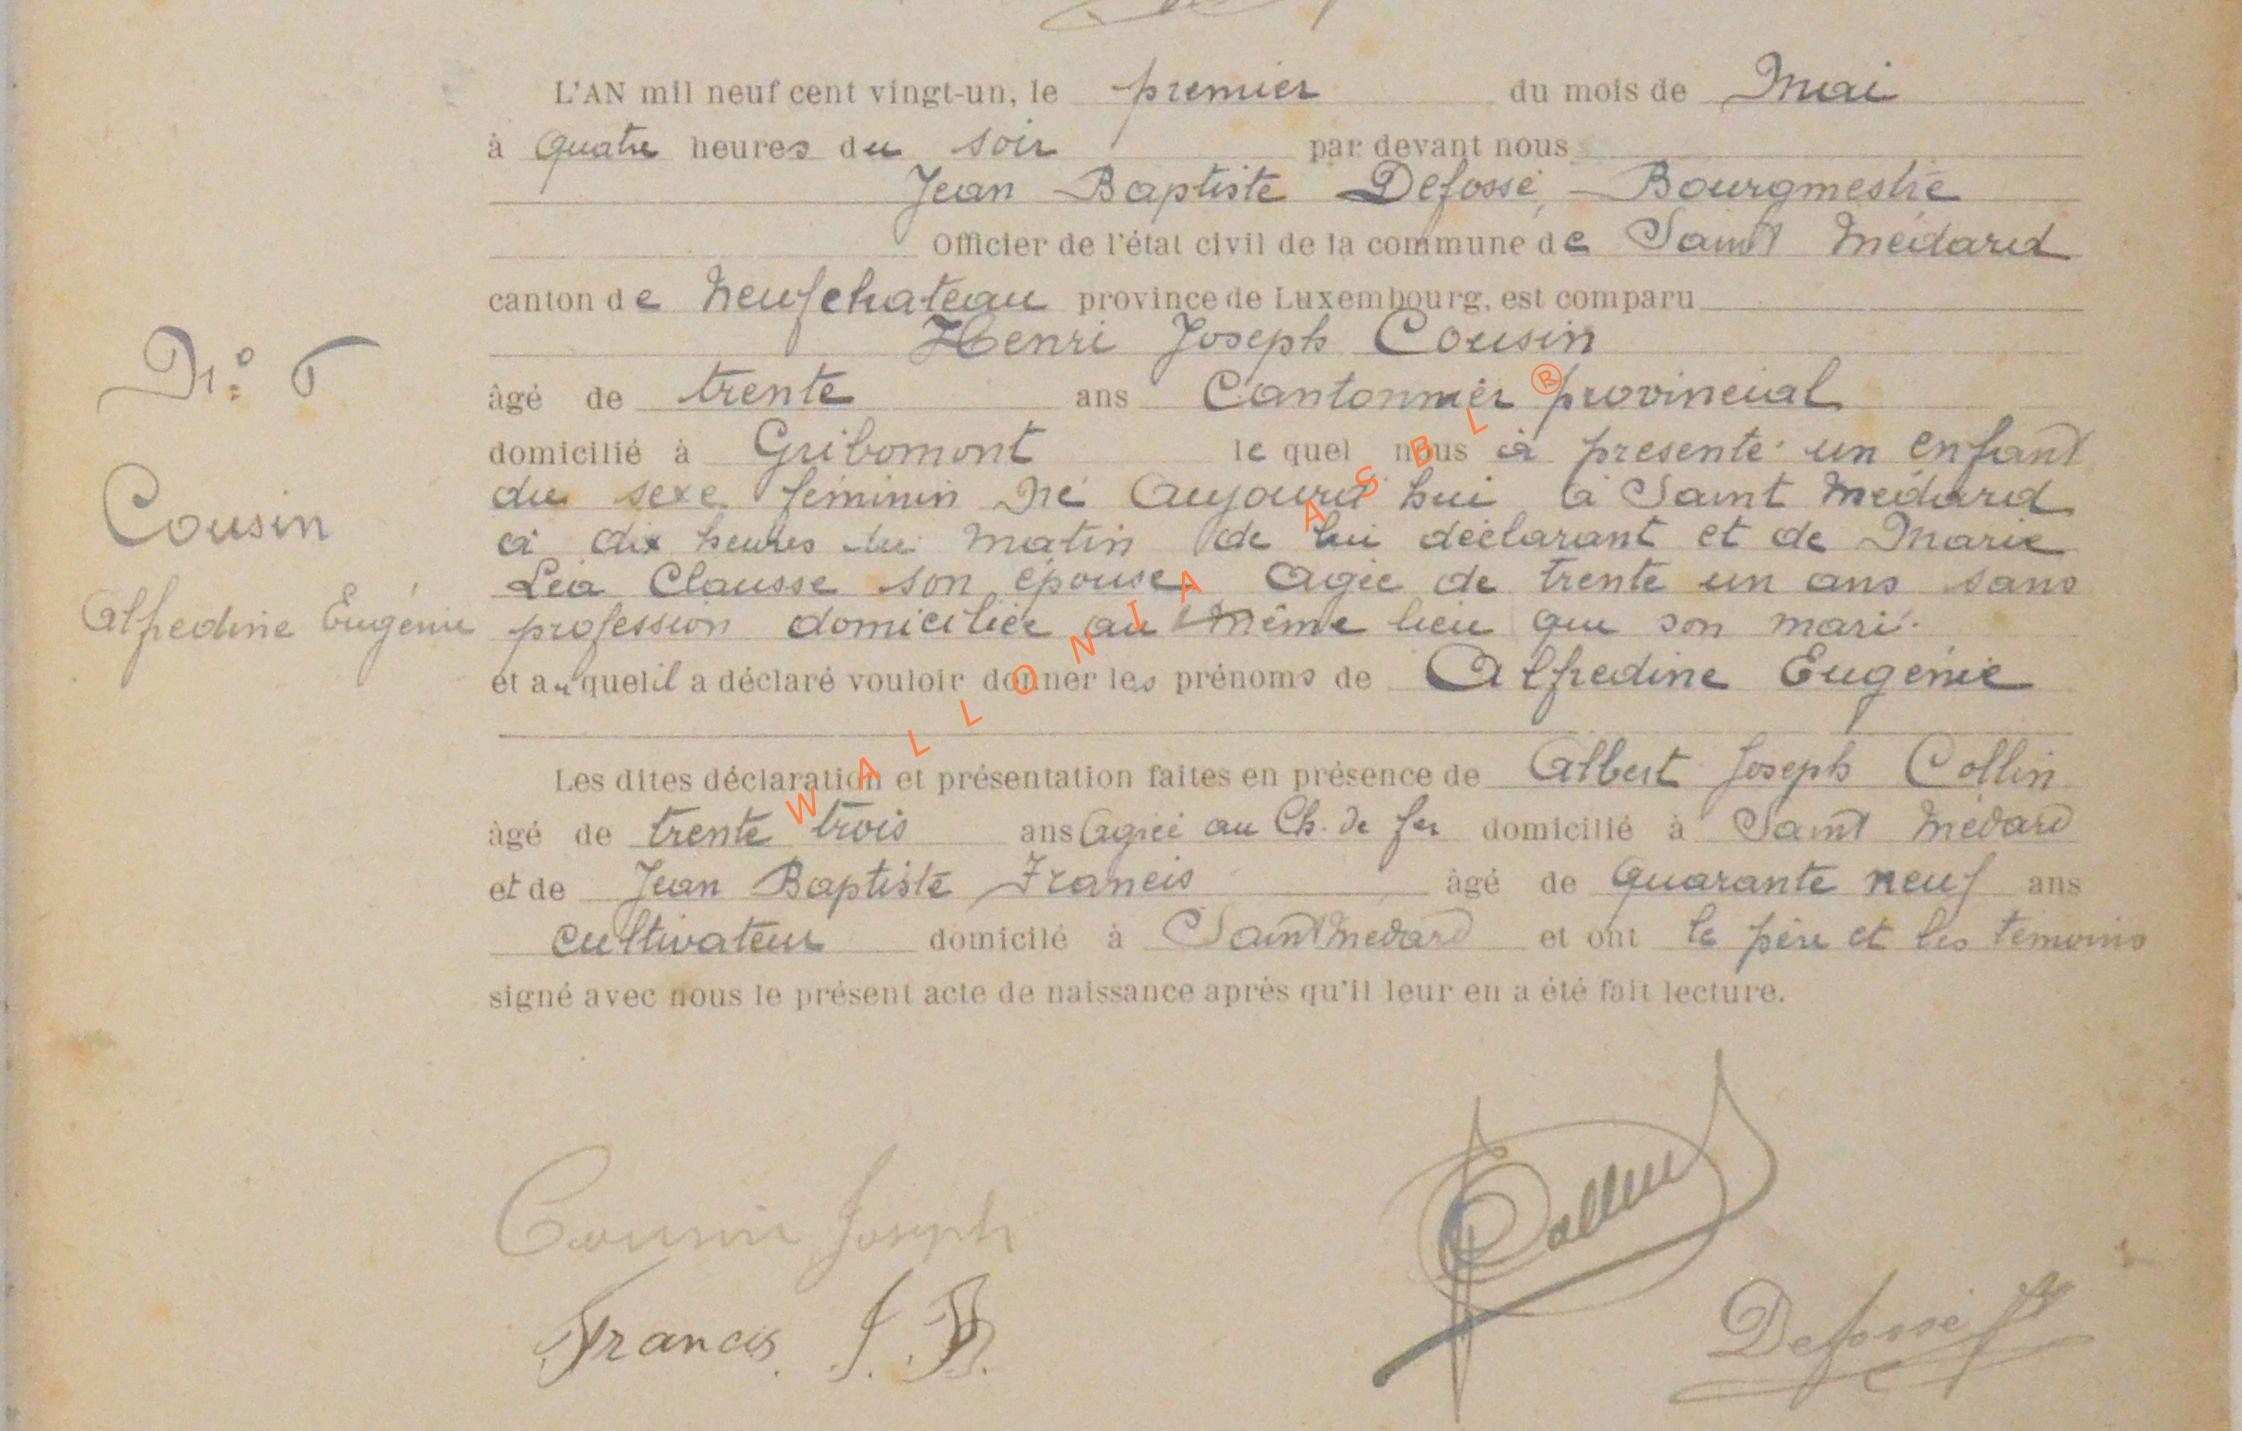 L'AN mil neuf cent vingt-un, le premier du mois de Mai
à quatre heures du soir par devant nous
Jean Baptiste Defossé, Bourgmestre
Officier de l'état civil de la commune de Saint Médard
canton de Neufchateau province de Luxembourg, est comparu
Henri Joseph Cousin
âgé de trente ans Cantonnier provincial
domicilié à Gribomont lequel nous à presenté un enfant
N°. 6
du sexe féminin Né Aujourd'hui à Saint Médard
Cousin
à dix heures du matin de lui déclarant et de Marie
Léa Clausse son épouse Agée de trente un ans sans
Alfredine Eugénie
profession domiciliée au même lieu que son mari.
et auquel il a déclaré vouloir donner les prénoms de Alfredine Eugénie
Les dites déclaration et présentation faites en présence de Albert Joseph Collin
âgé de trente trois ans Agréé au Ch. de fer domicilié à Saint Médard
et de Jean Baptiste Francis âgé de quarante neuf ans
cultivateur domicilé à Saint Medard et ont le père et les témoins
signé avec nous le présent acte de naissance après qu'il leur en a été fait lecture.
WALLONIA ASBL ®
Cousin Joseph
Collin
Francis J. B.
Defossé